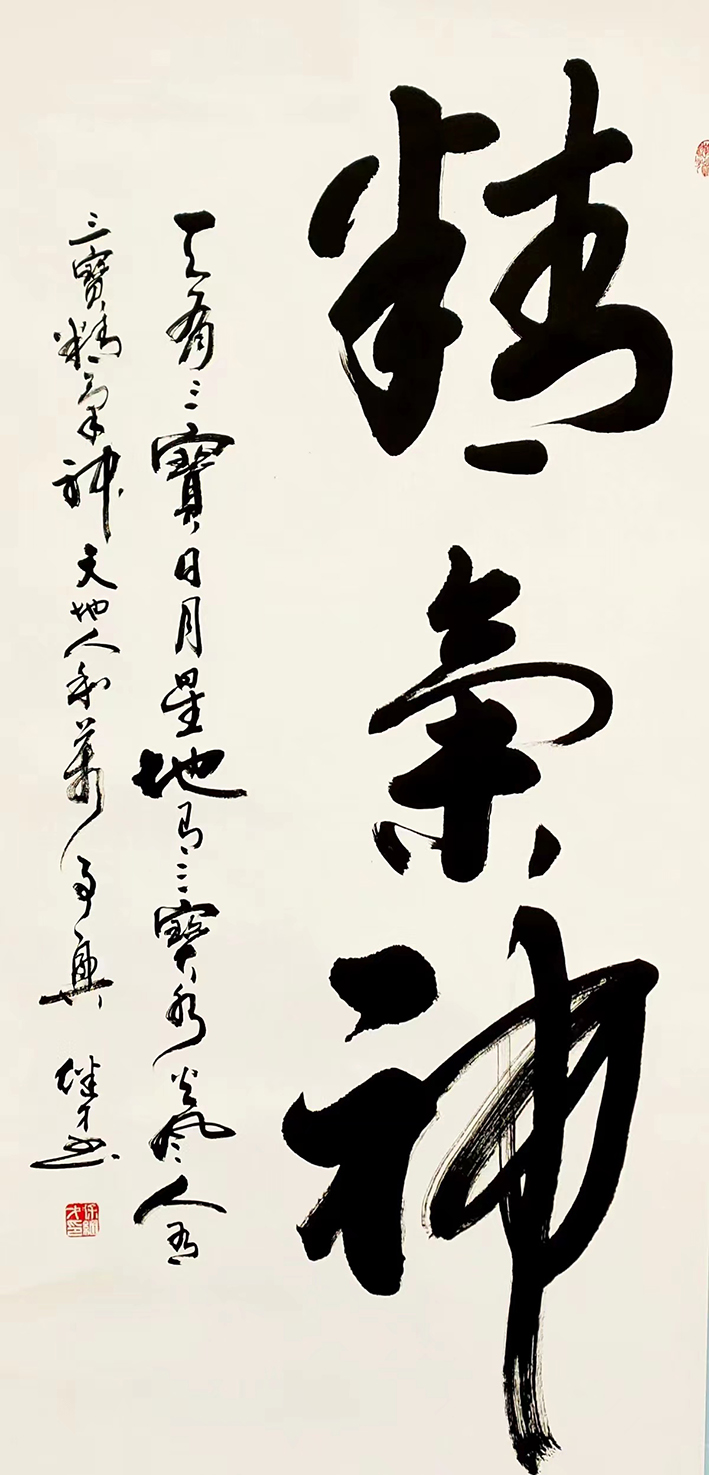 精氣神
天有三寶日月星地有三寶水火風人有
三寶精氣神天地人和萬事興 继才书